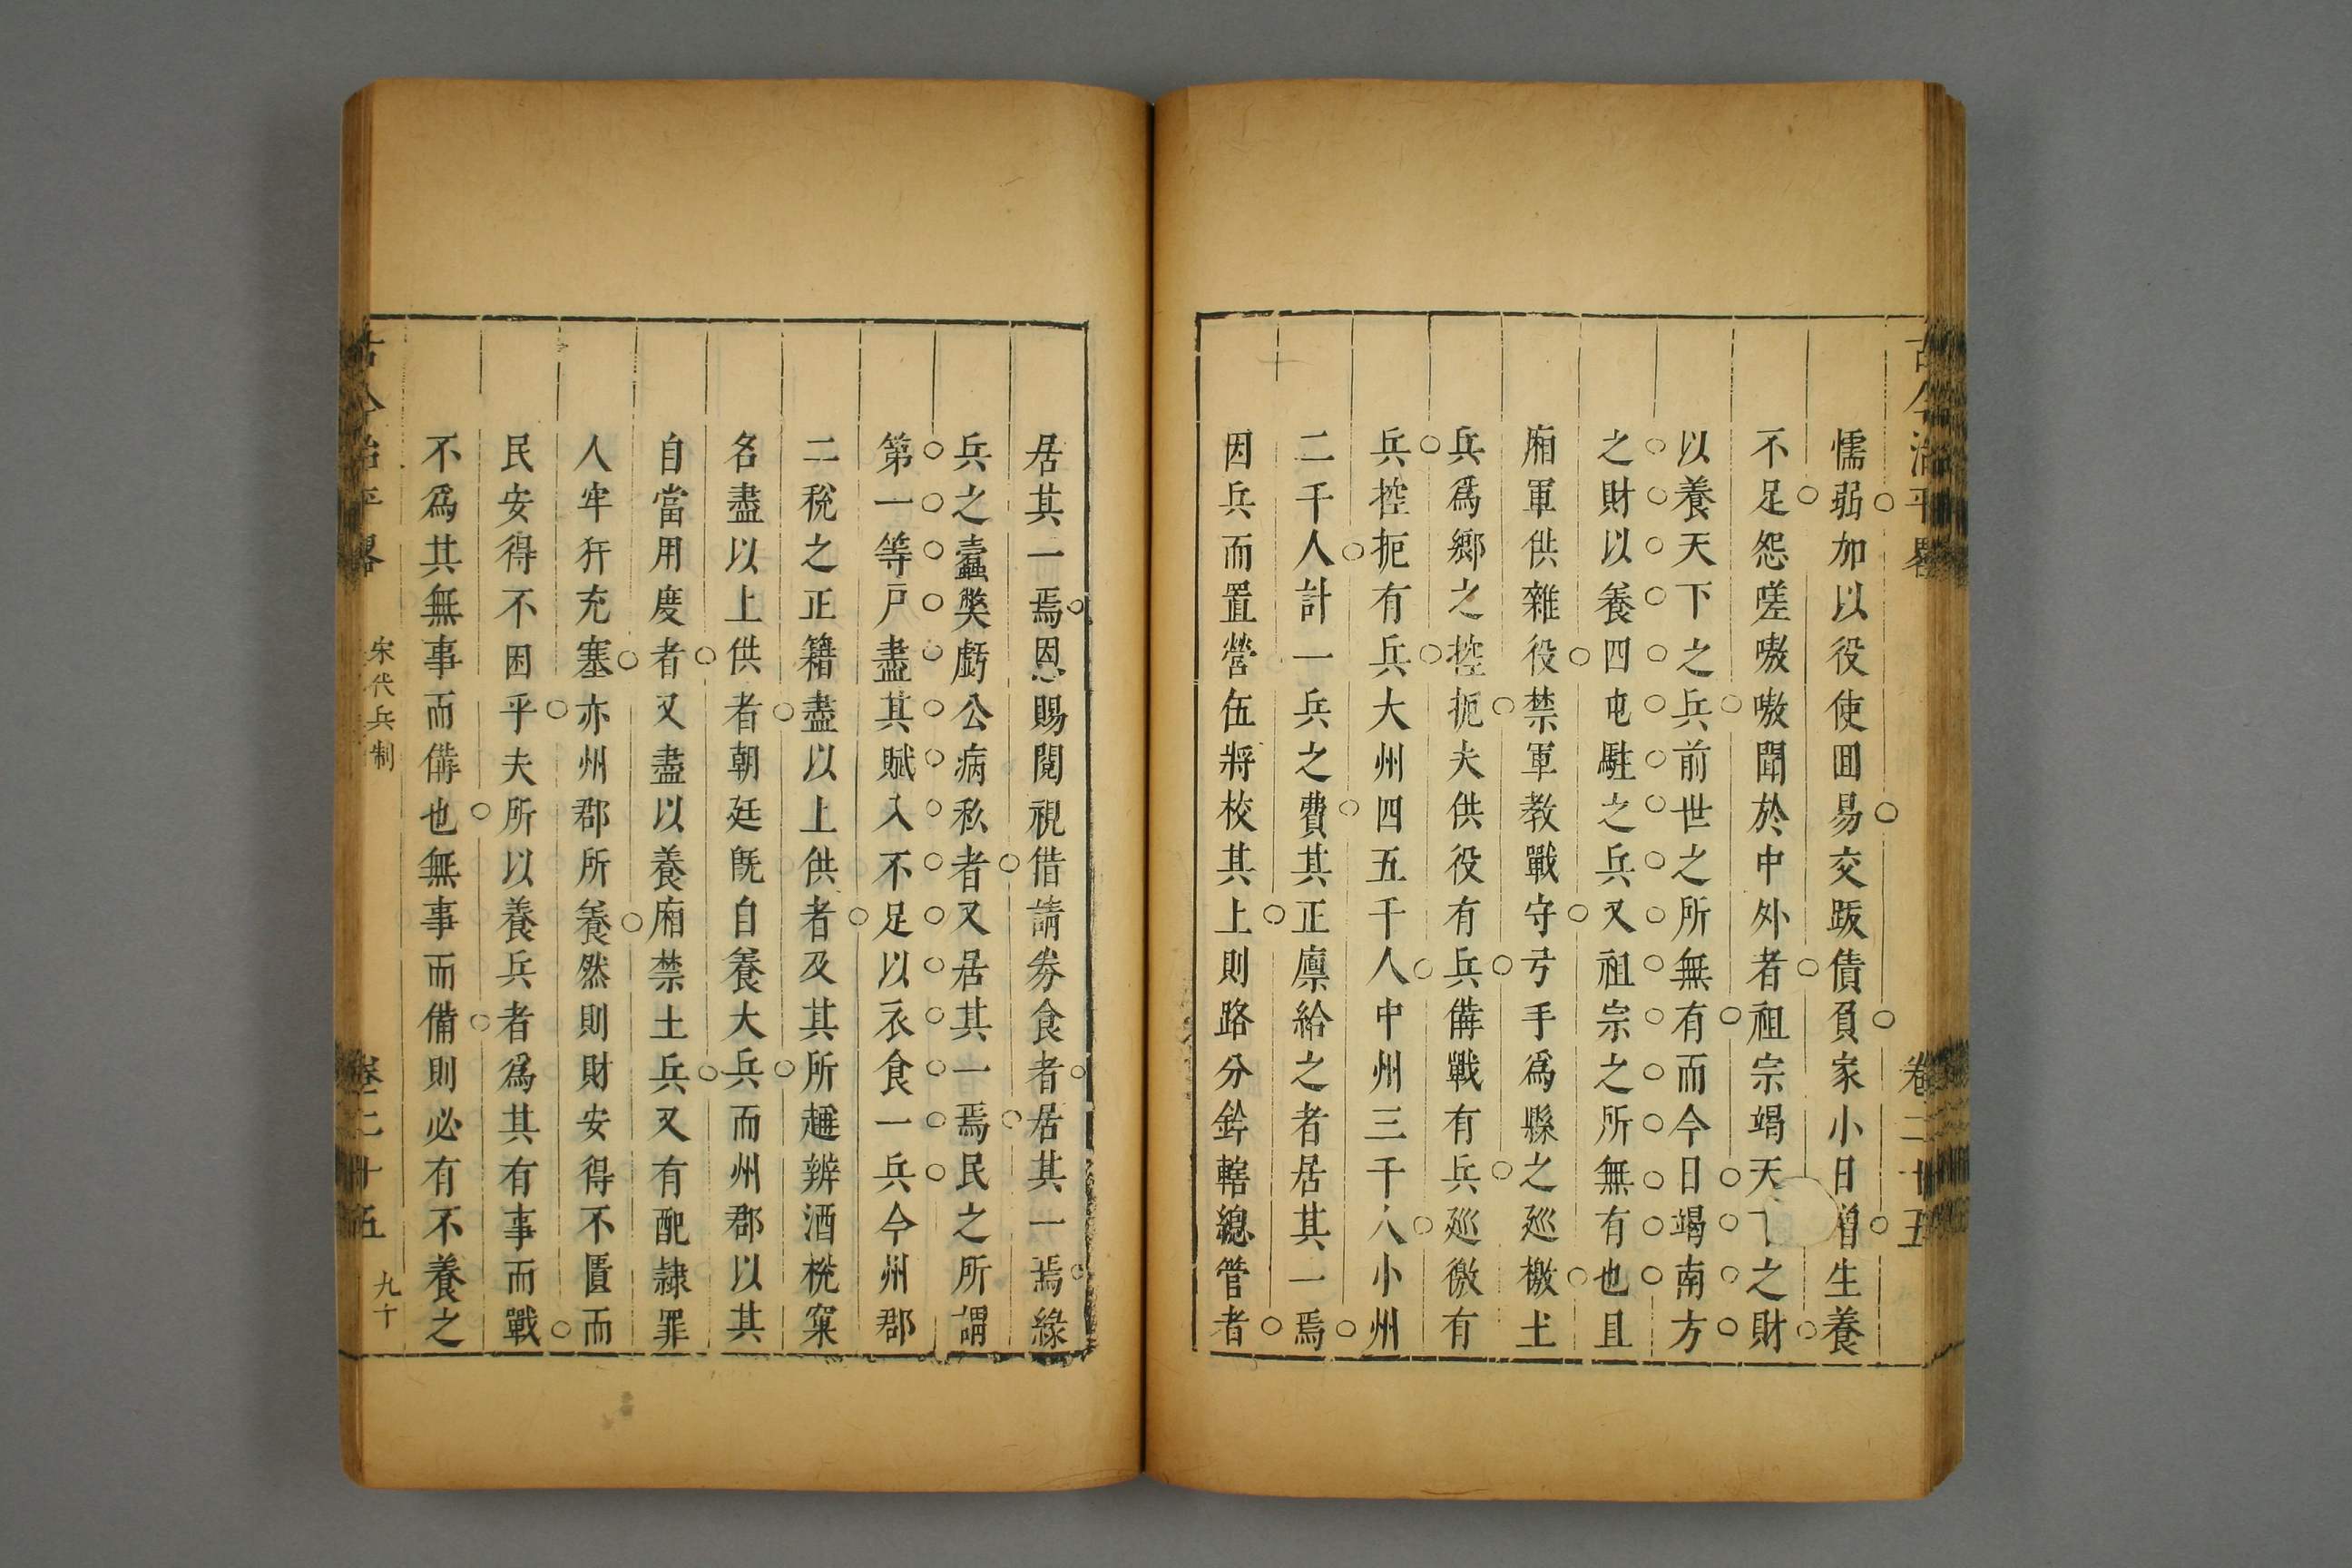 古今治平畧 卷二十五
懦弱加以役使回易交跋債負家小日增生養
不足怨嗟嗷嗷聞於中外者祖宗竭天下之財
以養天下之兵前世之所無有而今日竭南方
之財以養四屯駐之兵又祖宗之所無有也且
廂軍供雜役禁軍教戰守弓手爲縣之廵檄土
兵爲鄉之控扼夫供役有兵備戰有兵廵徼有
兵控扼有兵大州四五千人中州三千人小州
二千人計一兵之費其正廪給之者居其一焉
因兵而置營伍將校其上則路分鈐轄總管者
居其一焉恩賜閱視借請劵食者居其一焉緣
兵之蠹獘虧公病私者又居其一焉民之所謂
第一等戸盡其賦入不足以衣食一兵今州郡
二稅之正籍盡以上供者及其所趣辨酒稅窠
名盡以上供者朝廷旣自養大兵而州郡以其
自當用度者又盡以養廂禁土兵又有配隷罪
人牢犴充塞亦州郡所養然則財安得不匱而
民安得不困乎夫所以養兵者爲其有事而戰
不爲其無事而備也無事而備則必有不養之
古今治平畧 宋代兵制 卷二十五 九十